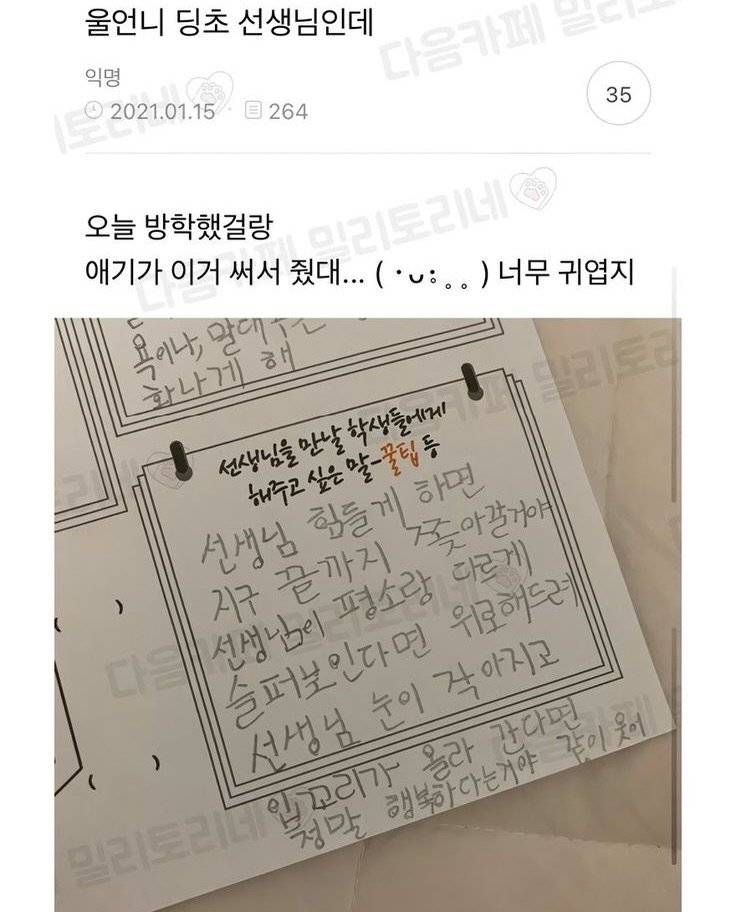 울언니 딩초 선생님인데
익명
2021.01.15 264
35
오늘 방학했걸랑
애기가 이거 써서 줬대... ( ·ᴗ: ̥ ̥ ) 너무 귀엽지
욕이나, 말대꾸는
화나게 해
선생님을 만날 학생들에게
해주고 싶은 말-꿀팁 등
선생님 힘들게 하면
지구 끝까지 쫓아갈거야
선생님이 평소랑 다르게
슬퍼보인다면 위로해드려
선생님 눈이 작아지고
입꼬리가 올라 간다면
정말 행복하다는거야 같이 웃어
다음카페 밀리토리네